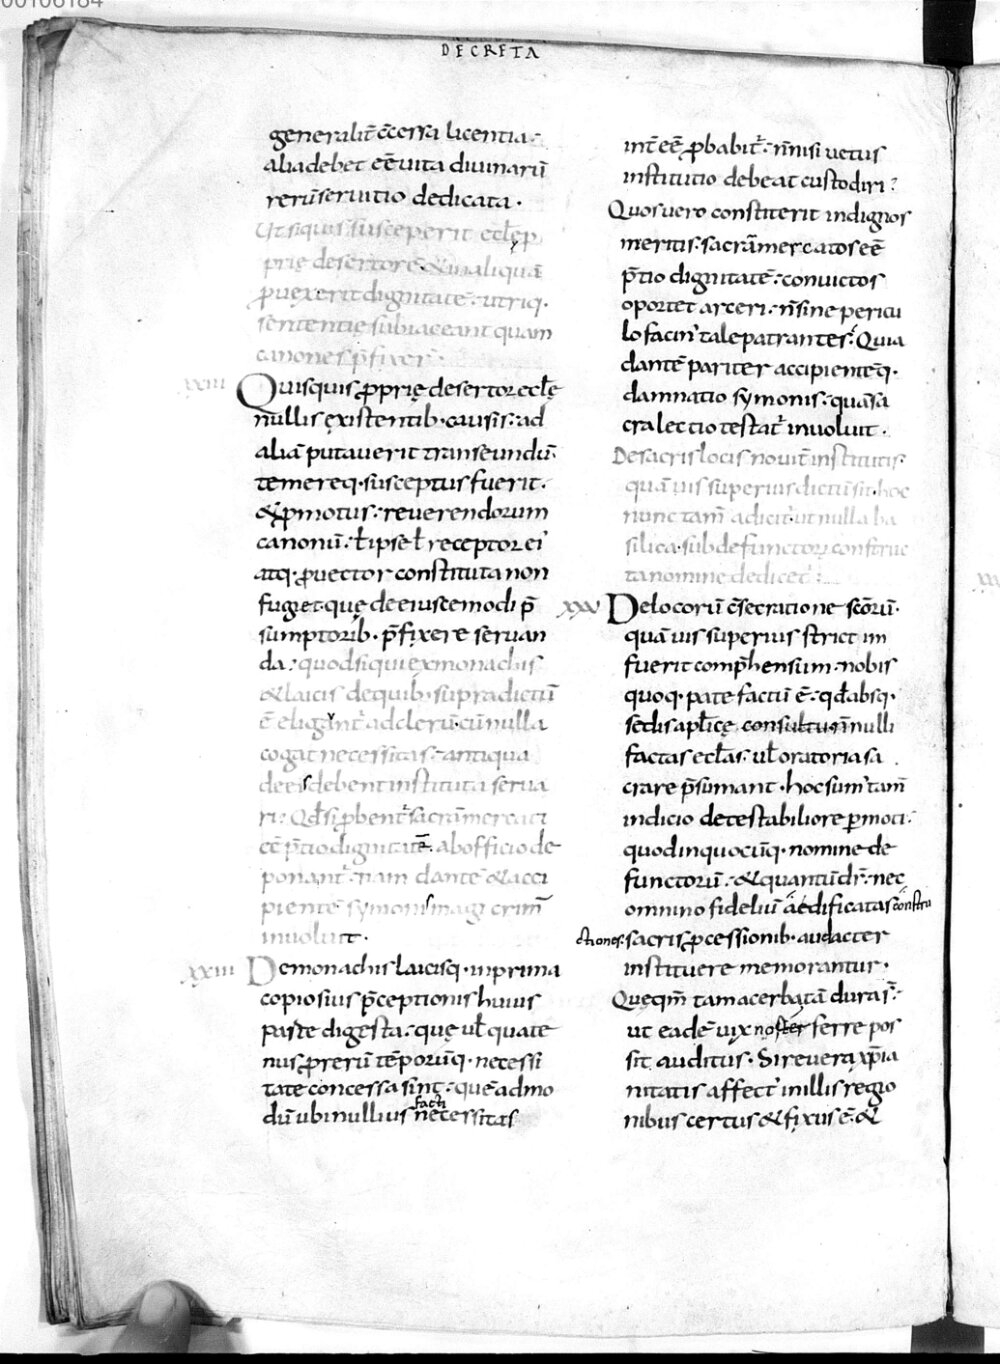 00106184
DECRETA
generalit̄ c̄cessa licentia·
alia debet eē uita diuinarū
rerū seruitio dedicata·
Ut siquis susceperit eccłę p
prię desertorē & in aliquā
ꝓuexerit dignitatē· utriq·
sententię subiaceant quam
canones p̄fixer̄·
xxiii Quisquis ꝓprię desertor eccłę
nullis existentib· causis· ad
aliā putauerit transeundū·
temereq· susceptus fuerit·
& ꝓmotus· reuerendorum
canonū· ł ipse ł receptor ei᾽
atq· ꝓuector constituta non
fugiet· quę de eiuscemodi p̄
sumptorib· p̄fixere seruan
da· quod siqui ex monachis
& laicis de quib· supra dictū
ē eligant ad clerū· cū nulla
cogat necessitas· antiqua
de eis debent instituta serua
ri· Qđ si ꝓbent̄ sacrām mercati
eē p̄tio dignitatē· ab officio de
ponant̄· nam dantē & acci
pientē symonis magi crim̄
inuoluit·
xxiiii De monachis laicisq· inprima
copiosius p̄ceptionis huius
parte digesta· quę uł quate
nus ꝓ rerū tēporūq· necessi
tate concessa sint· quēadmo
facti
dū ubi nullius necessitas
int̄eē ꝓbabit̄· n̄nisi uetus
institutio debeat custodiri·
Quos uero constiterit indignos
meritis· sacrām mercatos eē
p̄tio dignitatē· conuictos
oportet arceri· n̄ sine pericu
lo facin᾽ tale patrantes· Quia
dantē pariter accipientēq·
damnatio symonis· quā sa
cra lectio testat̄ inuoluit·
De sacris locis nouit̄ institutis·
quā uis superius dictū sit· hoc
nunc tam̄ adicit̄· ut nulla ba
silica· sub defunctoꝝ constru
ta nomine dedicet̄·
xxv De locorū c̄secratione sc̄orū·
quā uis superius strictim
fuerit comp̄hensum· nobis
quoq· patefactū ē· qđ absq·
sedis apłicę consultu nulli
factas eccłas· uł oratoria sa
crare p̄sumant· hoc sum᾽ tam̄
indicio detestabiliore p̱moti·
quod inquocūq· nomine de
functorū· & quantū dr̄· nec
omnino fideliū aedificatas constru
ctiones· sacris ꝓcessionib· audacter
instituere memorantur·
Quęqm̄ tam acerba tā dura s̄·
ut eadē uix noster ferre pos
sit auditus· Si reuera xp̄ia
nitatis affect᾽ in illis regio
nibus certus & fixus ē· &